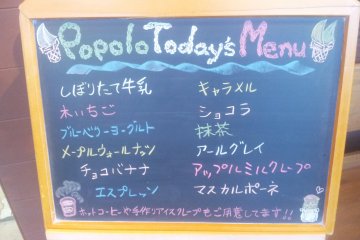 Popolo Today's Menu
しぼりたて牛乳
木いちご
ブルーベリーヨーグルト
メープルウォールナッツ
チョコバナナ
エスプレッソ
キャラメル
ショコラ
抹茶
アールグレイ
アップルミルクレープ
マスカルポーネ
ホットコーヒーや手作りアイスクレープもご用意してます!!